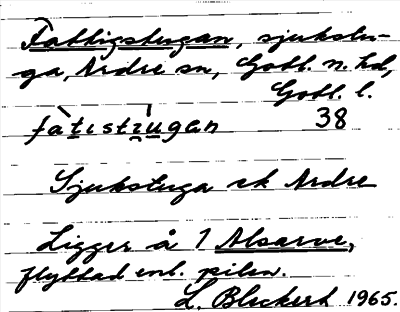 Fattigstugan, sjukstu-
ga, Ardre sn, Gotl. n. hd,
Gotl. l.
fàtistúgan 38
Sjukstuga sk Ardre
Ligger å 1 Alsarve,
flyttad enl. pilen.
L. Bleckert 1965.